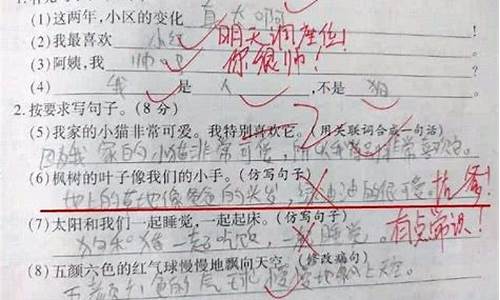 (1)这两年,小区的变化真大啊
(2)我最喜欢 小红 明天调座位!
(3)阿姨,我 帅吧 你很帅!
(4) 我 是 人 ,不是 狗
2. 按要求写句子。(8 分)
(5)我家的小猫非常可爱。我特别喜欢它。(用关联词合成一句话)
因为我家的小猫非常可爱,所以我特别非常喜欢它。
(6)枫树的叶子像我们的小手。(仿写句子)
地上的草地像爸爸的头发,绿油油的很可爱。
(7)太阳和我们一起睡觉,一起起床。(仿写句子)
狗和猪一起吃饭,一起睡觉。 有点常识!
(8)五颜六色的红气球慢慢地飘向天空。(修改病句)
五颜六色的气球慢慢地飘上天空。